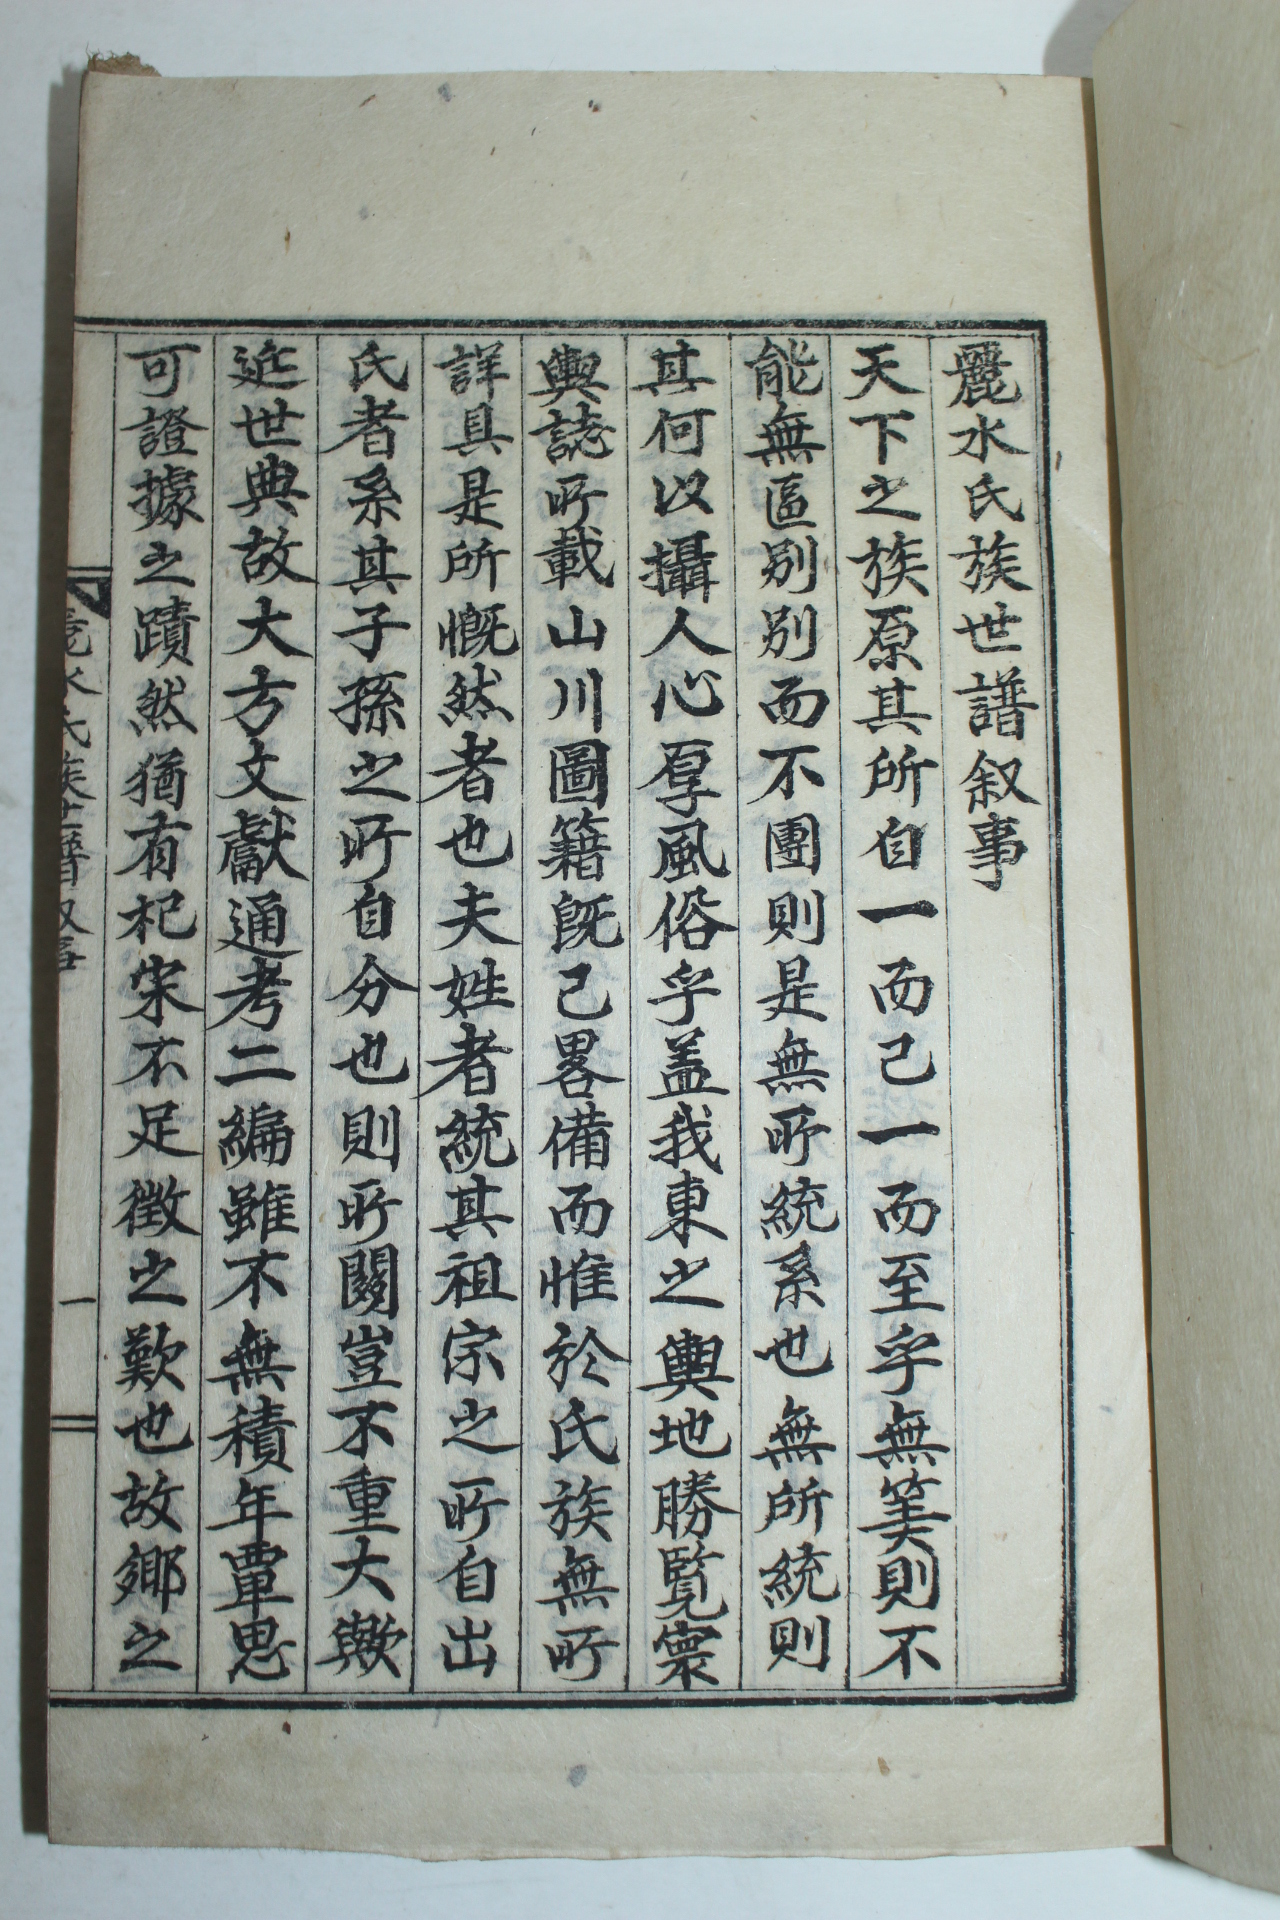 麗水氏族世譜叙事
天下之族原其所自一而已一而至乎無筭則不
能無區別別而不團則是無所統系也無所統則
其何以攝人心厚風俗乎盖我東之輿地勝覧寰
輿誌所載山川圖籍旣已畧備而惟於氏族無所
詳具是所慨然者也夫姓者統其祖宗之所自出
氏者系其子孫之所自分也則所關豈不重大歟
近世典故大方文獻通考二編雖不無積年覃思
可證據之蹟然猶有杞宋不足徵之歎也故鄕之
麗水氏族世譜叙事
一